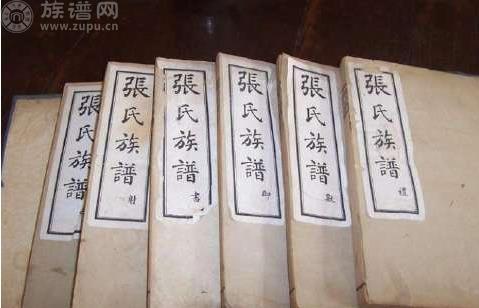 族谱网
www.zupu.cn
張氏族譜
張氏族譜 射
張氏族譜 書
張氏族譜 御
張氏族譜 數
張氏族譜 禮